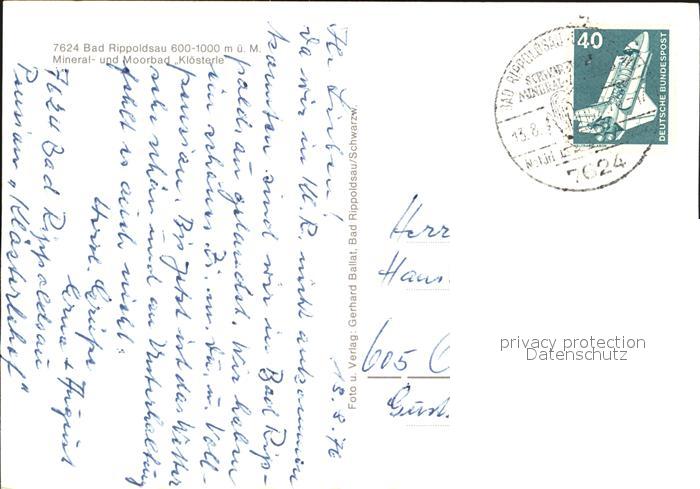 7624 Bad Rippoldsau 600-1000 m ü. M.
Mineral- und Moorbad „Klösterle"
13.8.76
Ihr Lieben!
Da wir in Kl. R. nicht ankommen
konnten sind wir in Bad Rip-
poldsau gelandet. Wir haben
ein schönes Zi. m. Du. u. Voll-
pension. Bis jetzt ist das Wetter
sehr schön und an Unterhaltung
fehlt es auch nicht.
Herzl. Grüße
Erna + August
7624 Bad Rippoldsau
Pension „Klösterlehof"
Foto u. Verlag: Gerhard Ballat, Bad Rippoldsau/Schwarzw.
BAD RIPPOLDSAU
13.8.
7624
40
DEUTSCHE BUNDESPOST
Herr
Hans
605
Gust
privacy protection
Datenschutz